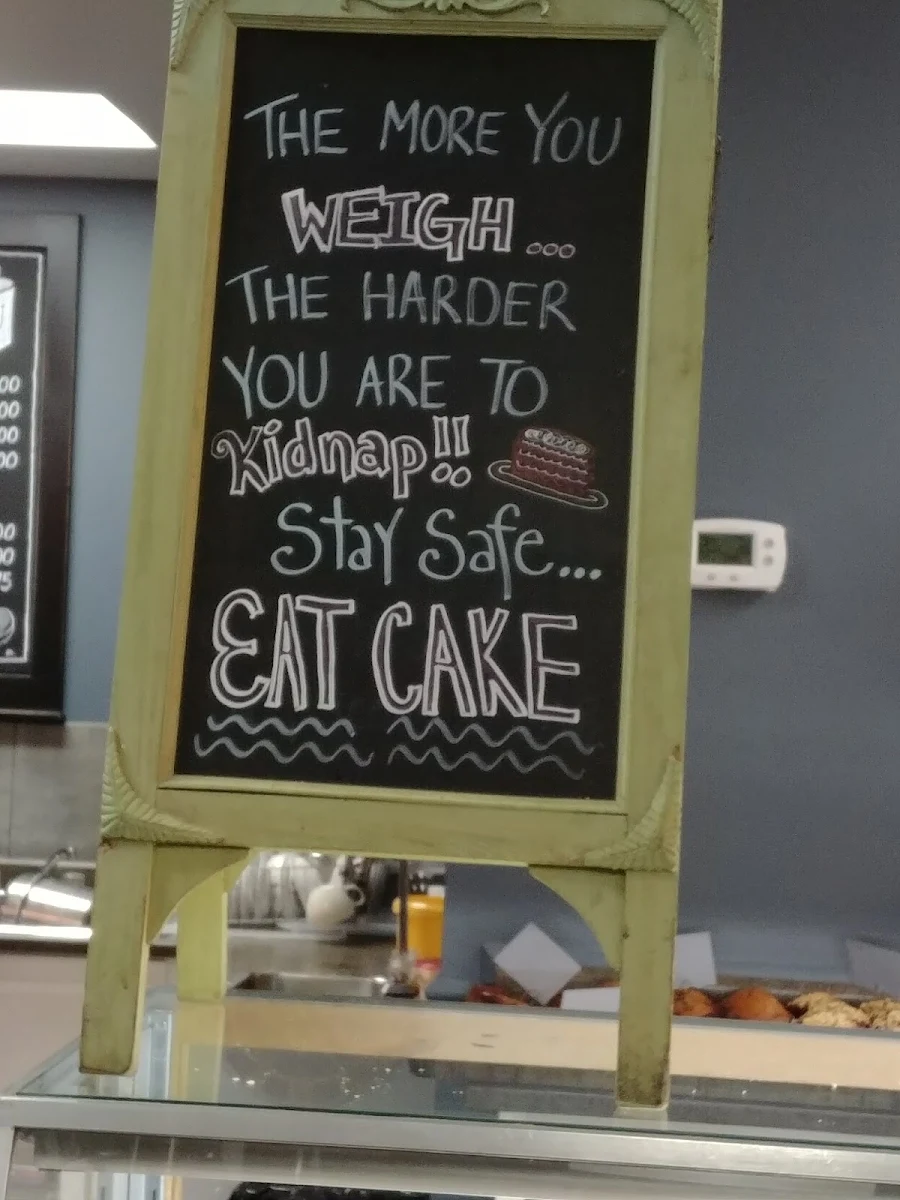 THE MORE YOU
WEIGH...
THE HARDER
YOU ARE TO
Kidnap!!
Stay Safe...
EAT CAKE
00
00
00
00
00
00
75